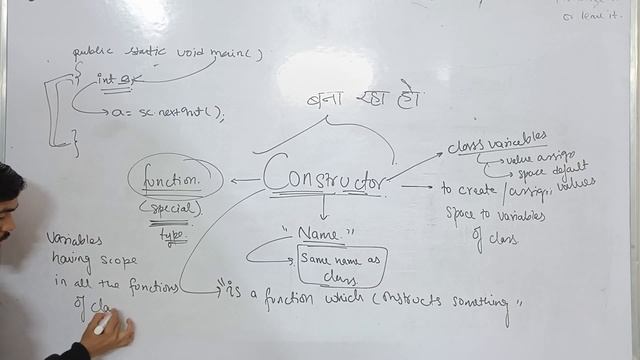 or lend it.
public static void main()
{
int a;
a = sc.nextInt();
}
बना रहा हो
Constructor
function.
(special)
type
class variables
value assign
space default
to create / assign values
space to variables
of class
"Name"
Same name as
class
"is a function which constructs something"
variables
having scope
in all the functions
of cla